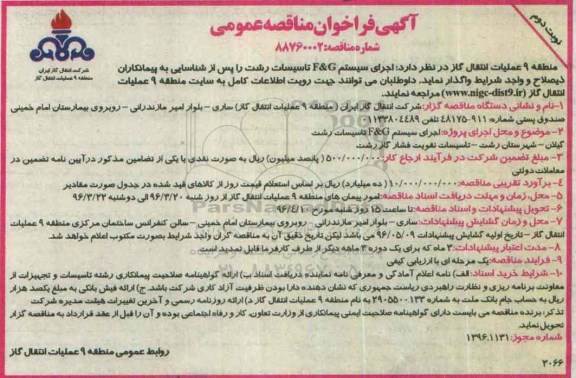 آگهی فراخوان مناقصه عمومی
شماره مناقصه: ۸۸۷۶۰۰۰۲
نوبت دوم
شرکت انتقال گاز ایران
منطقه ۹ عملیات انتقال گاز
منطقه ۹ عملیات انتقال گاز در نظر دارد: اجرای سیستم F&G تاسیسات رشت را پس از شناسایی به پیمانکاران
ذیصلاح و واجد شرایط واگذار نماید. داوطلبان می توانند جهت رویت اطلاعات کامل به سایت منطقه ۹ عملیات
انتقال گاز (www.nigc-dist9.ir) مراجعه نمایند.
۱-نام و نشانی دستگاه مناقصه گزار: شرکت انتقال گاز ایران (منطقه ۹ عملیات انتقال گاز) ساری – بلوار امیر مازندرانی – روبروی بیمارستان امام خمینی
صندوق پستی شماره: ۹۱۱-۴۸۱۷۵ تلفن ۰۱۱۳۳۸۰۴۴۸۹
۲-موضوع و محل اجرای پروژه: اجرای سیستم F&G تاسیسات رشت
گیلان – شهرستان رشت – تاسیسات تقویت فشار گاز رشت.
۳- مبلغ تضمین شرکت در فرآیند ارجاع کار: ۵۰۰/۰۰۰/۰۰۰ (پانصد میلیون) ریال به صورت نقدی یا یکی از تضامین مذکور در آیین نامه تضمین در
معاملات دولتی
۴- برآورد تقریبی مناقصه: ۱۰/۰۰۰/۰۰۰/۰۰۰ (ده میلیارد) ریال بر اساس استعلام قیمت روز از کالاهای قید شده در جدول صورت مقادیر
۵- محل، زمان و مهلت دریافت اسناد مناقصه: امور پیمان های منطقه ۹ عملیات انتقال گاز از روز شنبه ۹۶/۳/۲۰ الی دوشنبه ۹۶/۳/۲۲
۶- تحویل پیشنهادات و اسناد مناقصه: تا ساعت ۱۵ روز شنبه مورخ ۹۶/۴/۱۰
۷- محل و زمان گشایش پیشنهادات: ساری – بلوار امیر مازندرانی – روبروی بیمارستان امام خمینی – سالن کنفرانس ساختمان مرکزی منطقه ۹ عملیات
انتقال گاز – تاریخ اولیه گشایش پیشنهادات ۹۶/۰۵/۰۹ می باشد لیکن تاریخ دقیق آن به مناقصه گران واجد شرایط بصورت مکتوب اعلام خواهد شد.
۸- مدت اعتبار پیشنهادات: ۳ ماه که برای یک دوره ۳ ماهه دیگر از طرف کارفرما قابل تمدید است.
۹- فرایند مناقصه: یک مرحله ای با ارزیابی کیفی
۱۰- شرایط خرید اسناد: الف) نامه اعلام آمادگی و معرفی نامه نماینده دریافت اسناد ب) ارائه گواهینامه صلاحیت پیمانکاری رشته تاسیسات و تجهیزات از
معاونت برنامه ریزی و نظارت راهبردی ریاست جمهوری که نشان دهنده دارا بودن ظرفیت آزاد کاری شرکت باشد. ج) ارائه فیش بانکی به مبلغ یکصد هزار
ریال به حساب جام بانک ملت به شماره ۲۹۰۵۵۰۰۱۳۳ به نام منطقه ۹ عملیات انتقال گاز د) ارائه روزنامه رسمی و آخرین تغییرات هیئت مدیره شرکت
تذکر: برنده مناقصه می بایست دارای گواهینامه صلاحیت ایمنی پیمانکاری از وزارت تعاون، کار و رفاه اجتماعی بوده و آن را قبل از عقد قرارداد به مناقصه گزار
تحویل نماید.
شماره مجوز: ۱۳۹۶.۱۱۳۱
روابط عمومی منطقه ۹ عملیات انتقال گاز
۳۰۶۶